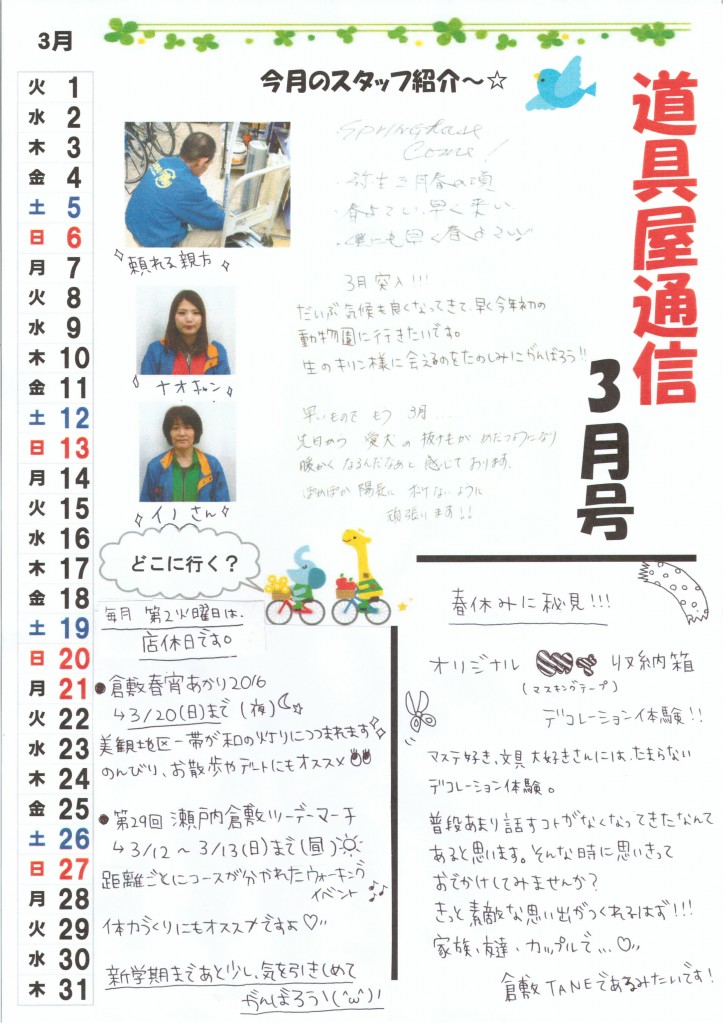 3月
火 1
水 2
木 3
金 4
土 5
日 6
月 7
火 8
水 9
木 10
金 11
土 12
日 13
月 14
火 15
水 16
木 17
金 18
土 19
日 20
月 21
火 22
水 23
木 24
金 25
土 26
日 27
月 28
火 29
水 30
木 31
道具屋通信
3月号
今月のスタッフ紹介～☆
Spring has
Come!
・弥生三月春の頃
・春よこい 早く来い
頼れる親方
3月突入!!!
だいぶ気候も良くなってきて、早く今年初の
動物園に行きたいです。
生のキリン様に会えるのをたのしみにがんばろう!!
ナオキャン
早いものでもう 3月...
先日から 愛犬の抜け毛が めだつようになり
暖かくなるんだなあと感じております。
ぽかぽか陽気に ボケないように
頑張ります!!
イノさん
どこに行く?
毎月 第2火曜日は、
店休日です。
●倉敷春宵あかり2016
↳3/20(日)まで (夜)
美観地区一帯が和の灯りにつつまれます
のんびり、お散歩やデートにもオススメ
●第29回 瀬戸内倉敷ツーデーマーチ
↳3/12 ～ 3/13(日)まで(昼)
距離ごとにコースが分かれたウォーキング
イベント♪♪
体力づくりにもオススメですよ♡
新学期まであと少し、気を引きしめて
がんばろう\(^ω^)/
春休みに必見!!!
オリジナル マステ 収納箱
(マスキングテープ)
デコレーション体験!!
マステ好き、文具大好きさんには、たまらない
デコレーション体験。
普段あまり話すコトがなくなってきたなんて
あると思います。そんな時に思いきって
おでかけしてみませんか?
きっと素敵な思い出がつくれるはず!!!
家族、友達、カップルで...♡
倉敷TANEであるみたいです!